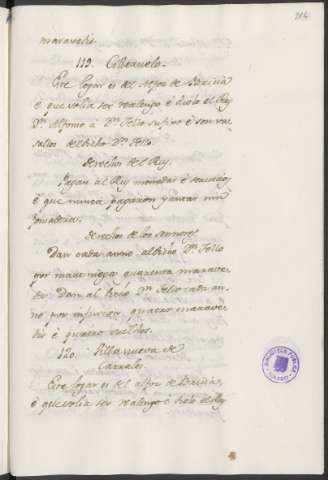 214
maravedis.
119. Cabezuelo.
Este logar es del Alfoz de
è que solia ser realengo è diolo el Rey
Dn. Alfonso à Dn. Tello su fijo è son vasa
sallos del dicho Dn. Tello.
Derechos del Rey.
Pagan al Rey monedas è servicios
è que nunca pagaron yantar nin
fonsadera.
Derechos de los Señores
Dan cada anno al dicho Dn. Tello
por martiniega quarenta marave-
dis. Dan al dicho Dn. Tello cada an-
no por infurcion quatro marave-
dis è quatro sueldos.
120. Villanueva de
Este logar es del alfoz de
è que solia ser realengo è diolo el Rey
BIBLIOTECA PUBLICA
TOLEDO